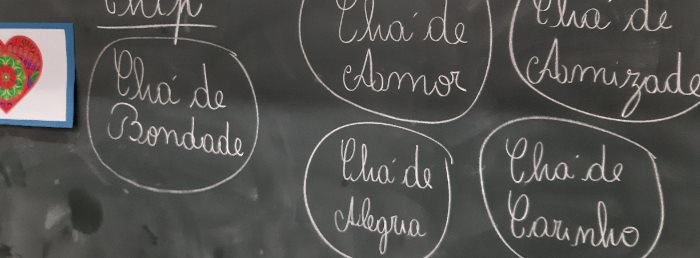 Chá de
Bondade
Chá de
Amor
Chá de
Amizade
Chá de
Alegria
Chá de
Carinho